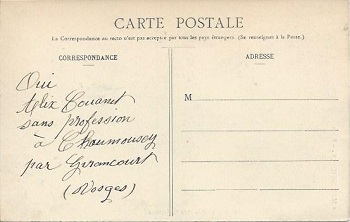 CARTE POSTALE
La Correspondance au recto n'est pas acceptée par tous les pays étrangers. (Se renseigner à la Poste.)
CORRESPONDANCE
ADRESSE
Oui
Couanet
sans profession
à Chaumousey
par Girancourt
(Vosges)
M